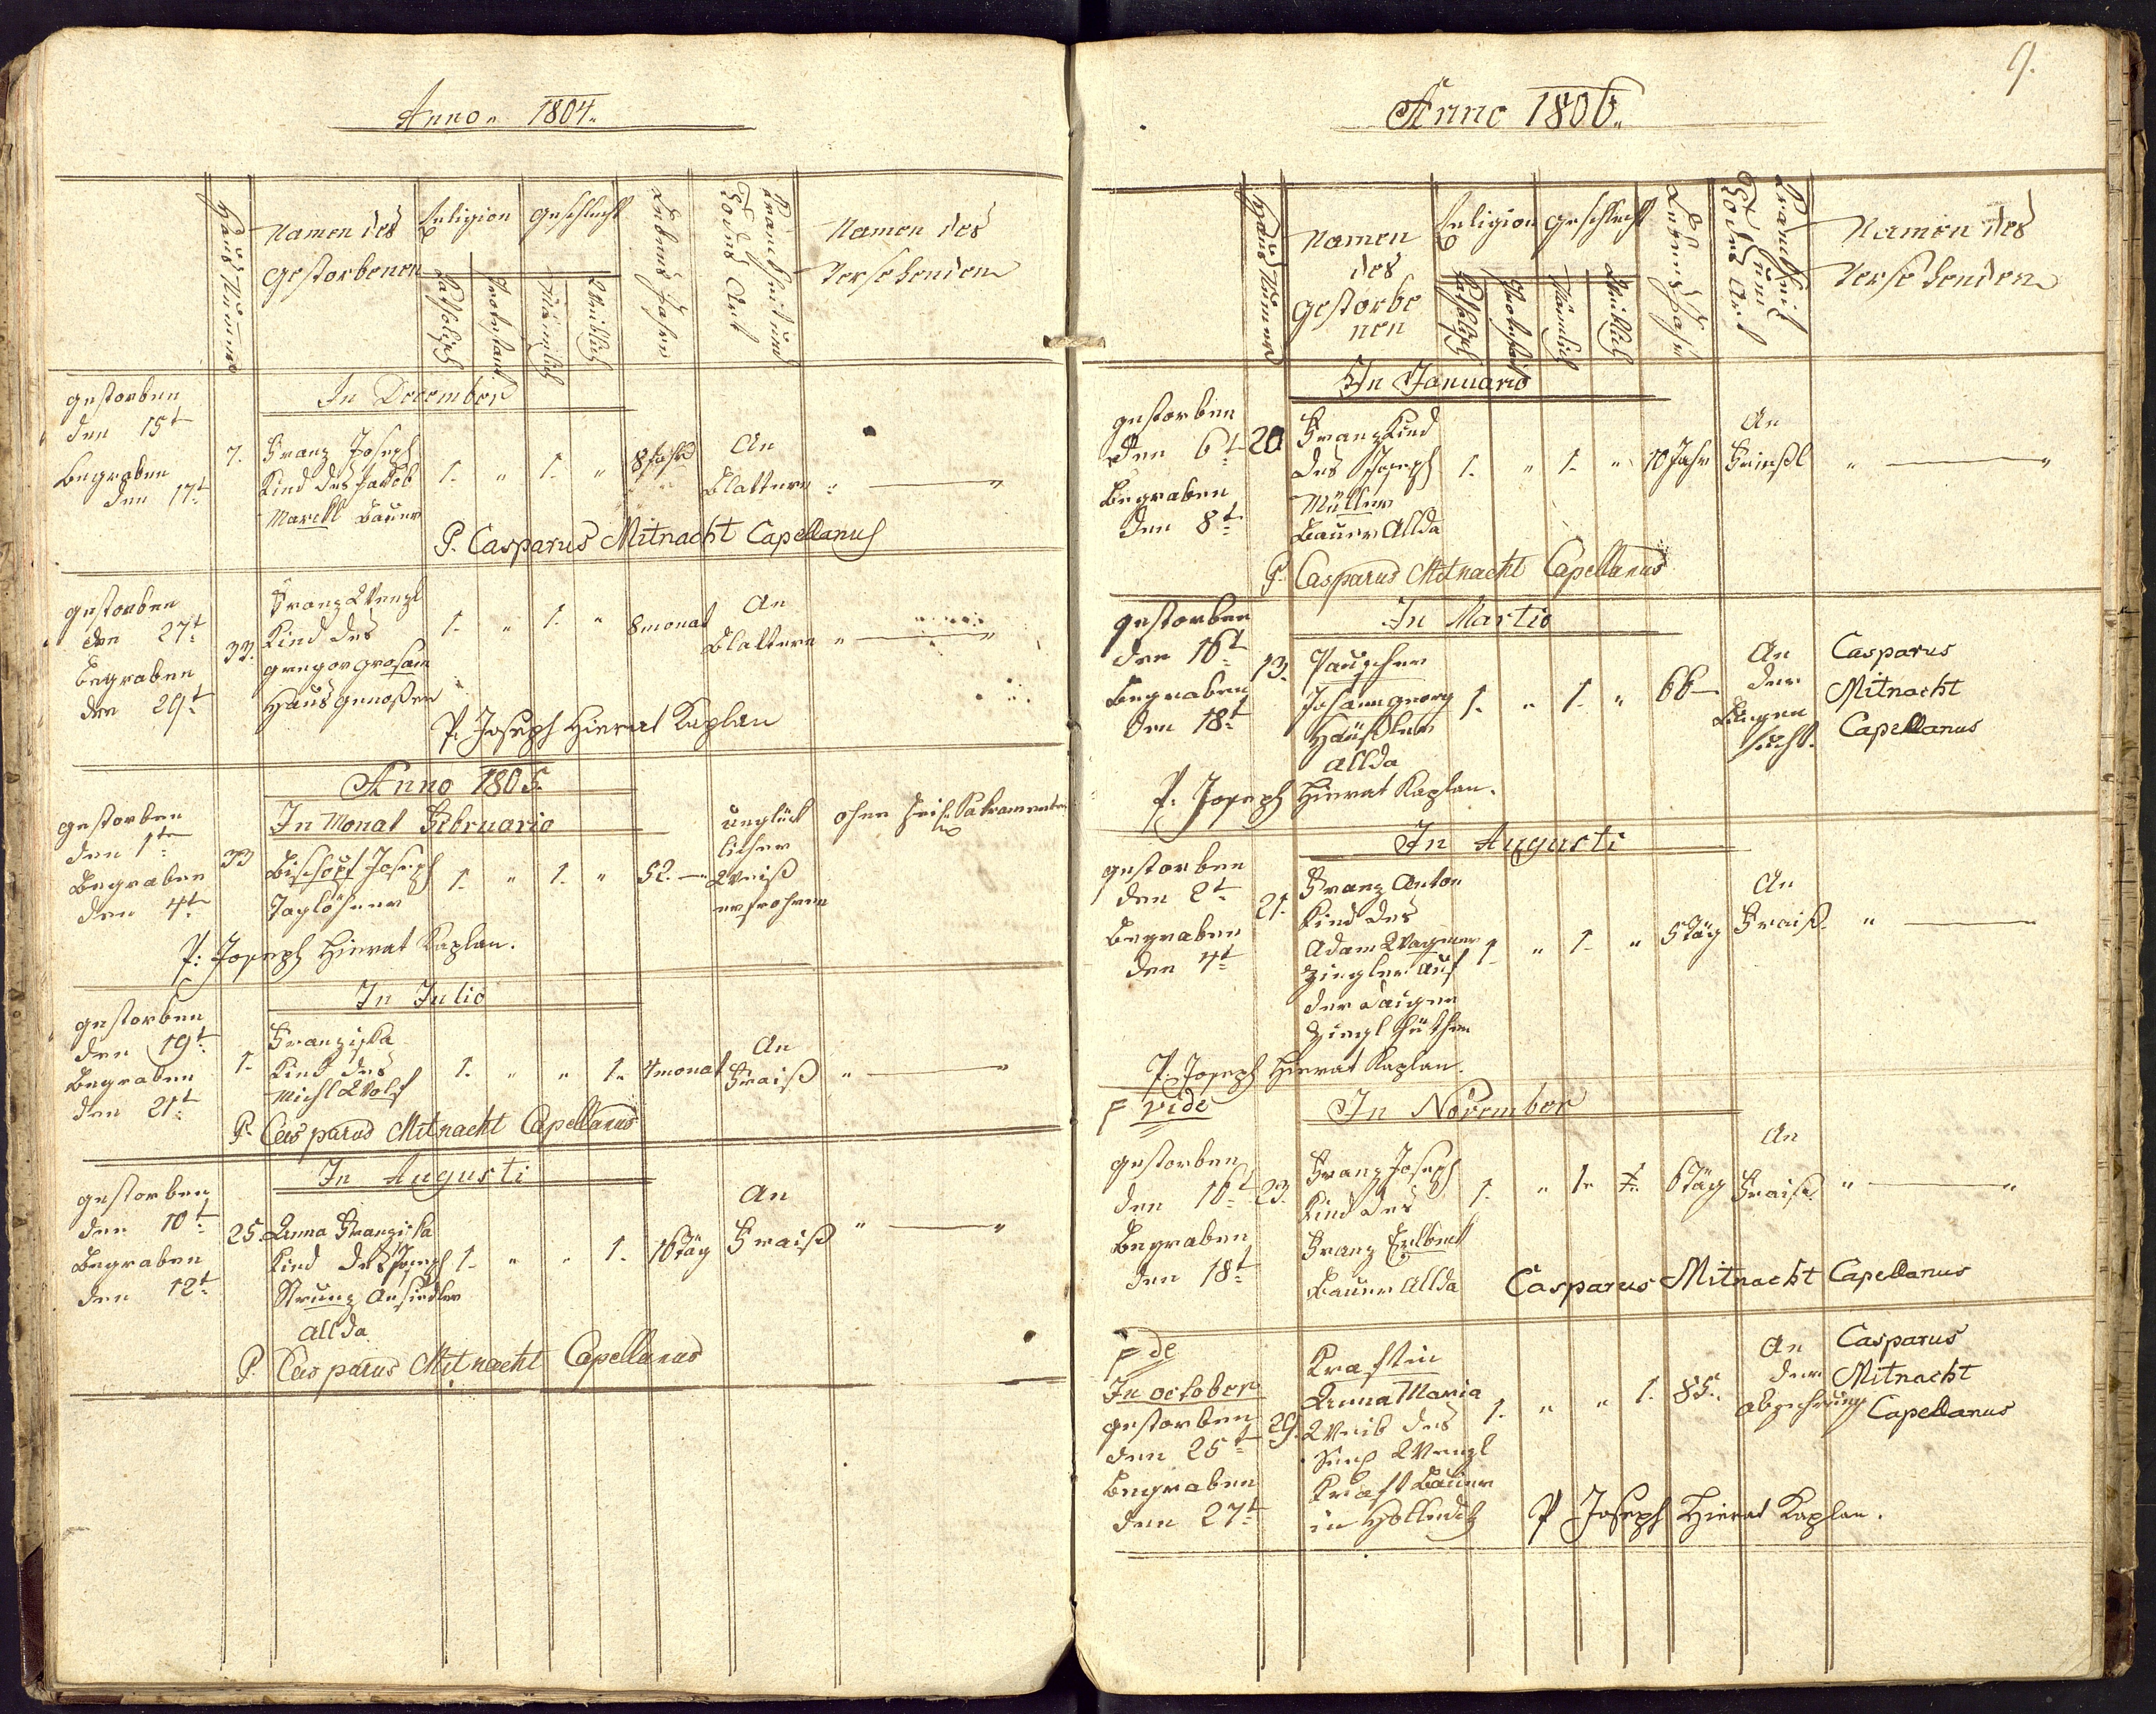 Anno 1804.
Haus Numero
Namen des
Gestorbenen
Religion
Katholisch
Protestant
Geschlecht
Männlich
Weiblich
Lebens Jahre
Krankheit und
Todes Art
Namen des
Versehenden
In December
gestorben
den 15t
Begraben
den 17t
7.
Franz Joseph
Kind des Jakob
Marckl Bauer
1. " 1. " 8 Jahr
An
Blattern "
P. Casparus Mitnacht Capellanus
gestorben
den 27t
Begraben
den 29t
33.
Franz Wenzl
Kind des
Gregor Grosam
Hausgenoßen
1. " 1. " 8 monat
An
Blattern " "
P. Joseph Hierat Kaplan
Anno 1805.
In Monat Februario
gestorben
den 1t
Begraben
den 4t
33
Bischopf Joseph
Taglöhner
1. " 1. " 52.
unglück
licher
Weiß
erfrohren
ohne Heil. Sakramenten
P: Joseph Hierat Kaplan.
In Julio
gestorben
den 19t
Begraben
den 21t
1.
Franziska
Kind des
Michl Wolf
1. " " 1. 4 monat
An
Fraiß " "
P. Casparus Mitnacht Capellanus
In Augusti
gestorben
den 10t
Begraben
den 12t
25.
Anna Franziska
Kind des Joseph
Strunz Ansiedler
allda
1. " " 1. 10 Täg
An
Fraiß " "
P. Casparus Mitnacht Capellanus
9.
Anno 1806.
Haus Numero
Namen
des
Gestorbe
nen
Religion
Katholisch
Protestant
Geschlecht
Männlich
Weiblich
Lebens Jahr
Krankheit
und
Todes Art
Namen des
Versehenden
In Januario
gestorben
den 6t
Begraben
den 8t
20
Franz Kind
des Joseph
Müller
Bauer Allda
1. " 1. " 10 Jahr
An
" "
P. Casparus Mitnacht Capellanus
In Martio
gestorben
den 16t
Begraben
den 18t
13.
Pauscher
Johann Georg
Häußler
allda
1. " 1. " 66
An
der
Lungen
sucht.
Casparus
Mitnacht
Capellanus
P: Joseph Hierat Kaplan.
In Augusti
gestorben
den 2t
Begraben
den 4t
21.
Franz Anton
Kind des
Adam Wagner
Ziegler auf
der
Ziegl hütten
1. " 1. " 5 Täg
An
Fraiß. "
P. Joseph Hierat Kaplan.
F vide
In November
gestorben
den 16t
Begraben
den 18t
23.
Franz Joseph
Kind des
Franz Erlbeck
Bauer Allda
1. " 1. 6 Täg
An
Fraiß " "
Casparus Mitnacht Capellanus
F de
In october
gestorben
den 25t
Begraben
den 27t
29.
Kraftin
Anna Maria
Weib des
Wenzl
Kraft Bauer
in
1. " " 1. 85.
An
der
abzehrung
Casparus
Mitnacht
Capellanus
P Joseph Hierat Kaplan.